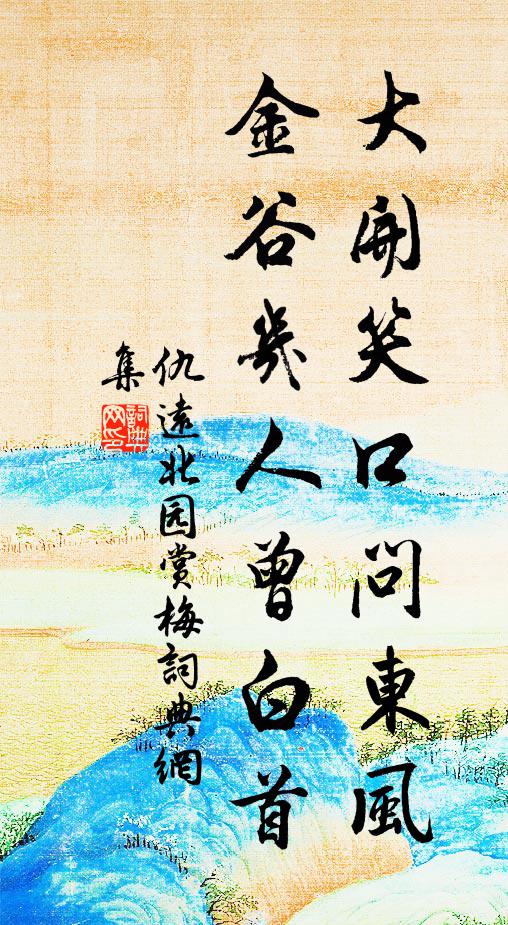 大開笑口問東風
金谷幾人曾白首
仇遠北园赏梅詞典網
集
詞典网印